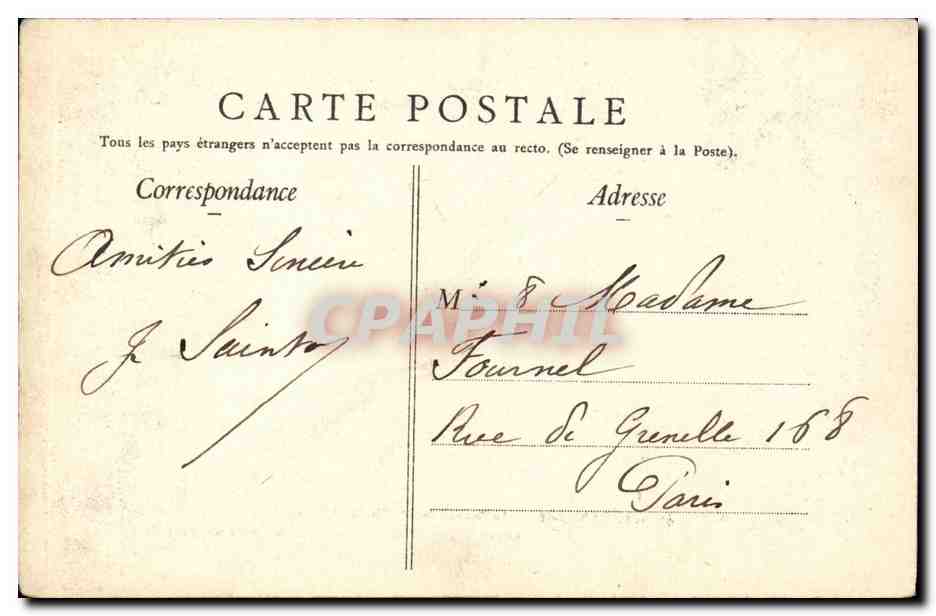 CARTE POSTALE
Tous les pays étrangers n'acceptent pas la correspondance au recto. (Se renseigner à la Poste).
Correspondance
Amitiés Sincère
Adresse
M. & Madame
Fournel
Rue de Grenelle 168
Paris
CPAPHIL